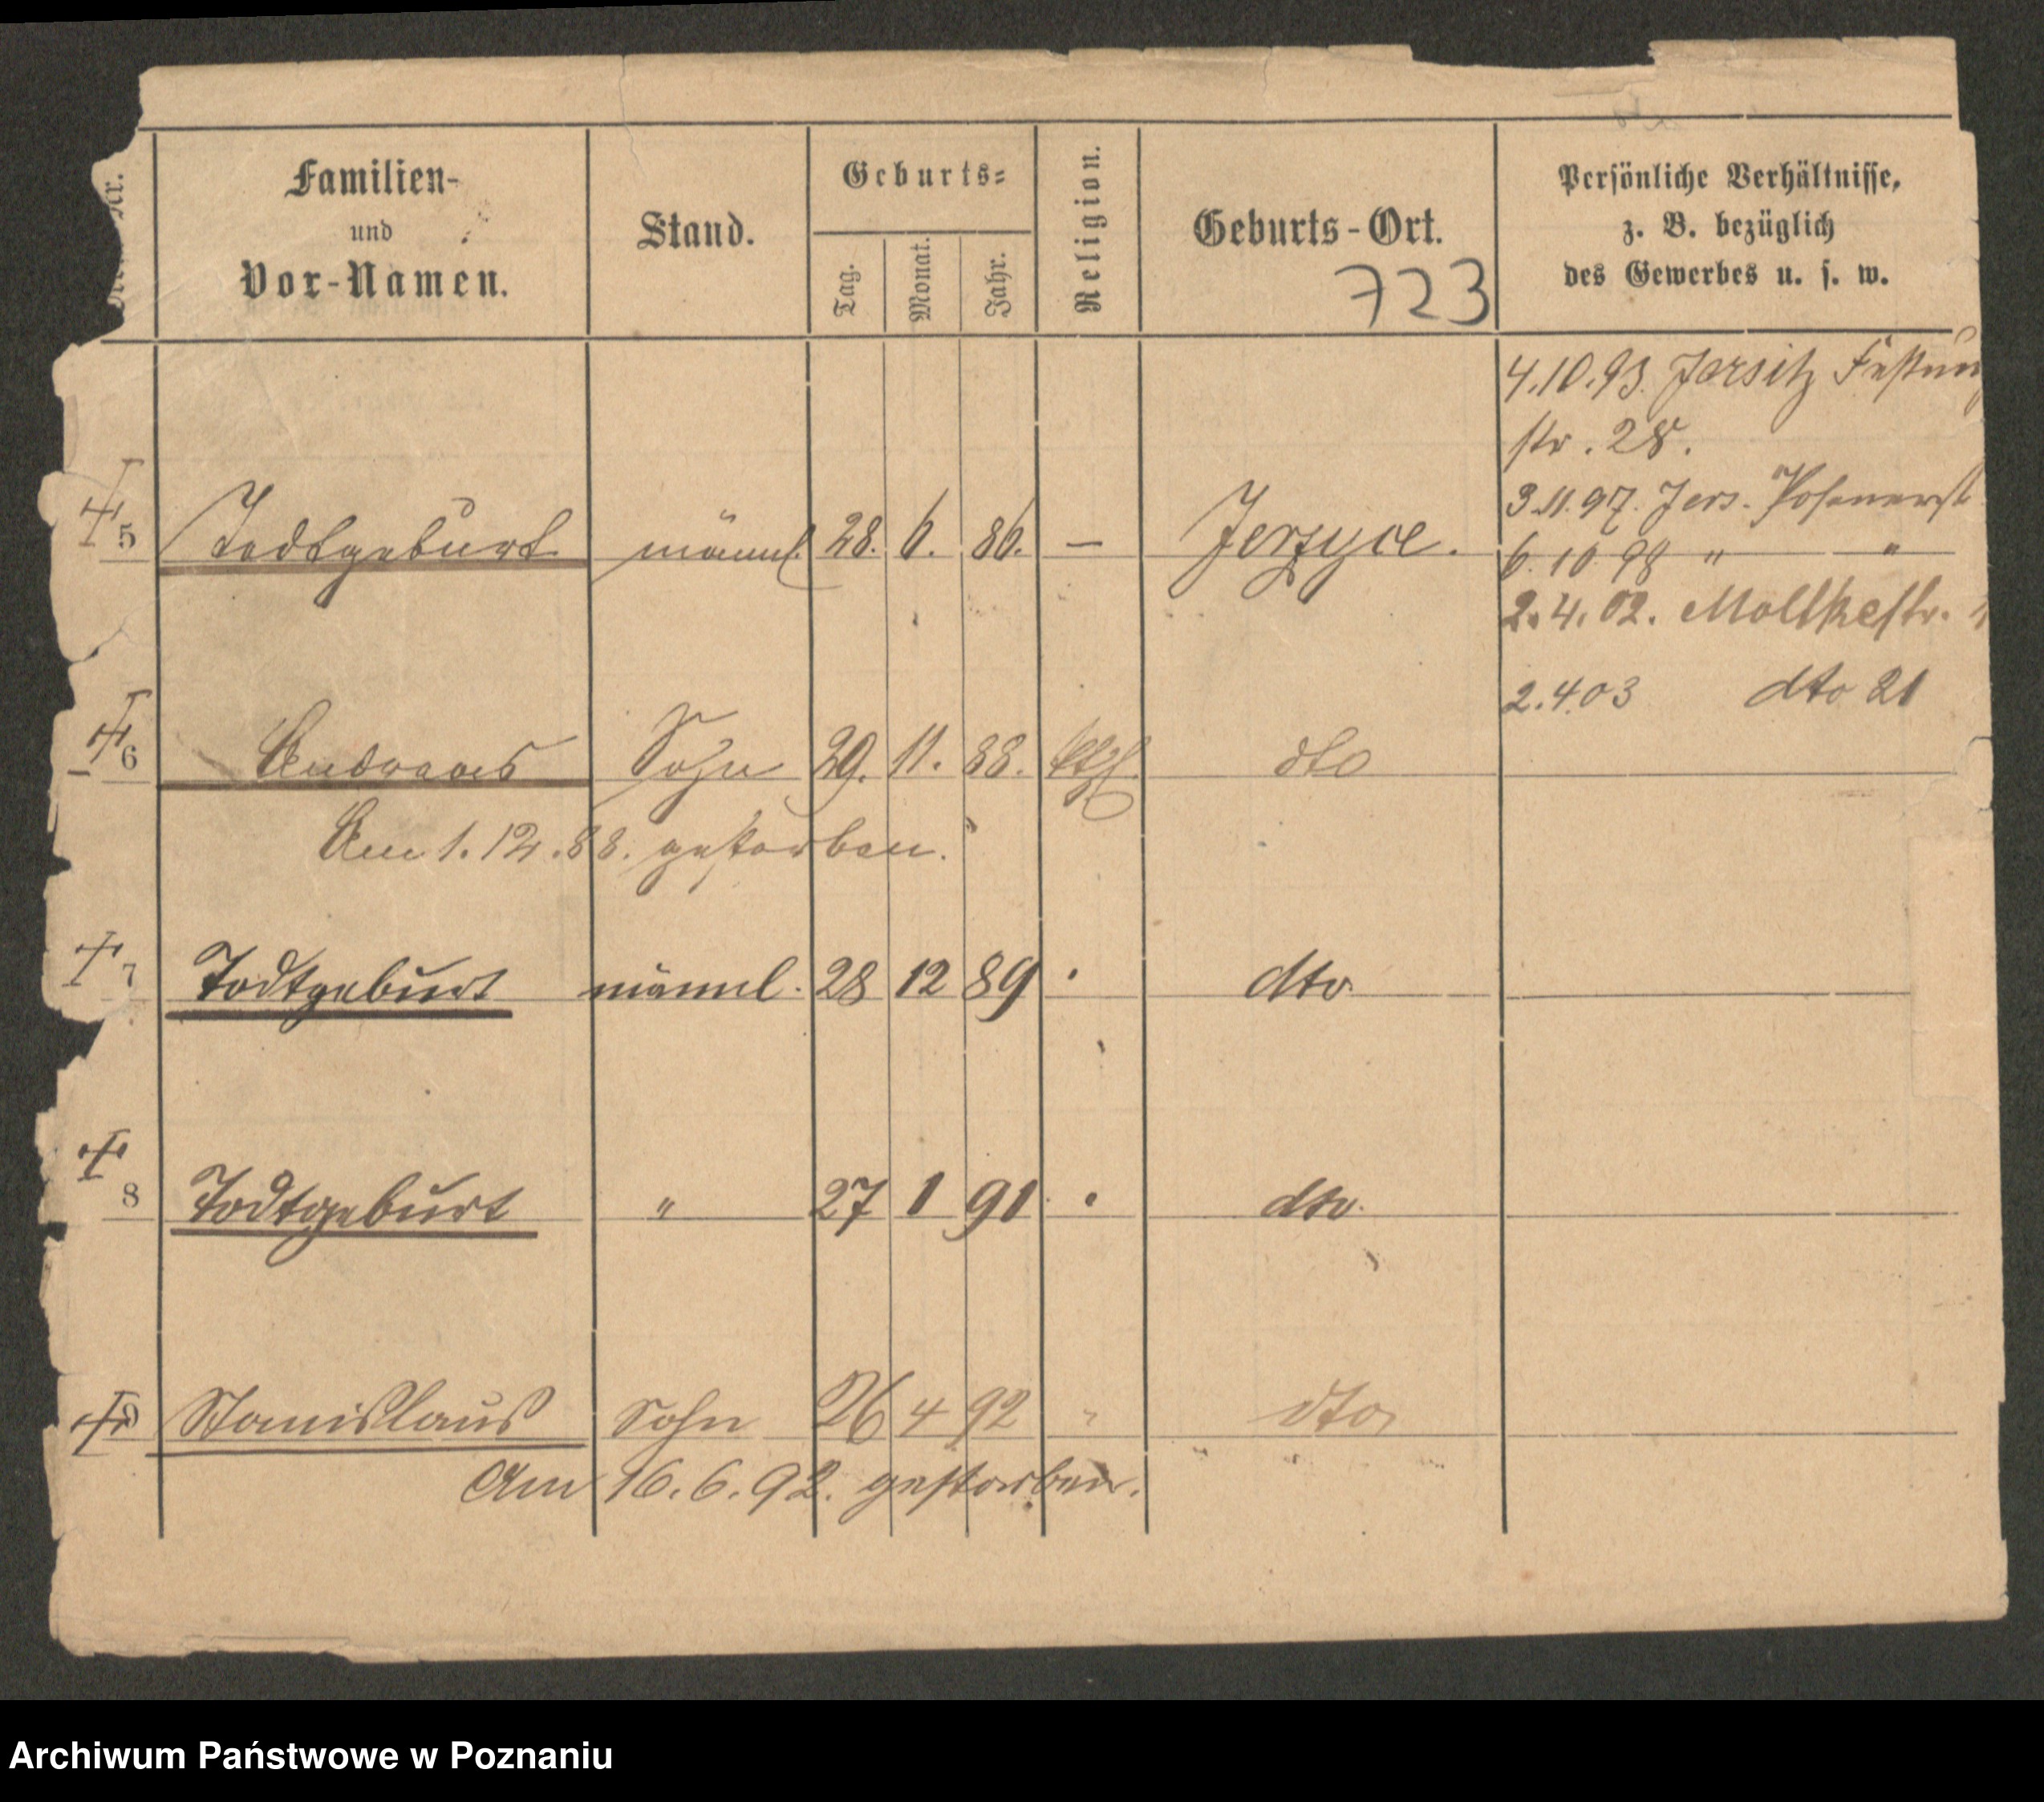 Nr.
Familien-
und
Vor-Namen.
Stand.
Geburts-
Tag.
Monat.
Jahr.
Religion.
Geburts-Ort.
723
Persönliche Verhältnisse,
z. B. bezüglich
des Gewerbes u. s. w.
4.10.93. Jersitz Festung
str. 28.
3.11.97. Jers. Posenerst
5 Todtgeburt männl. 28. 6. 86. — Jerzyce.
6. 10 98 " "
2.4.02. Moltkestr.
2.4.03 dto 21
6 Andreas Sohn 29. 11. 88. kthl. dto
Am 1.12.88. gestorben.
7 Todtgeburt männl. 28 12 89 dto
8 Todtgeburt " 27 1 91 dto.
9 Stanislaus Sohn 26 4 92 " dto
Am 16.6.92. gestorben.
Archiwum Państwowe w Poznaniu